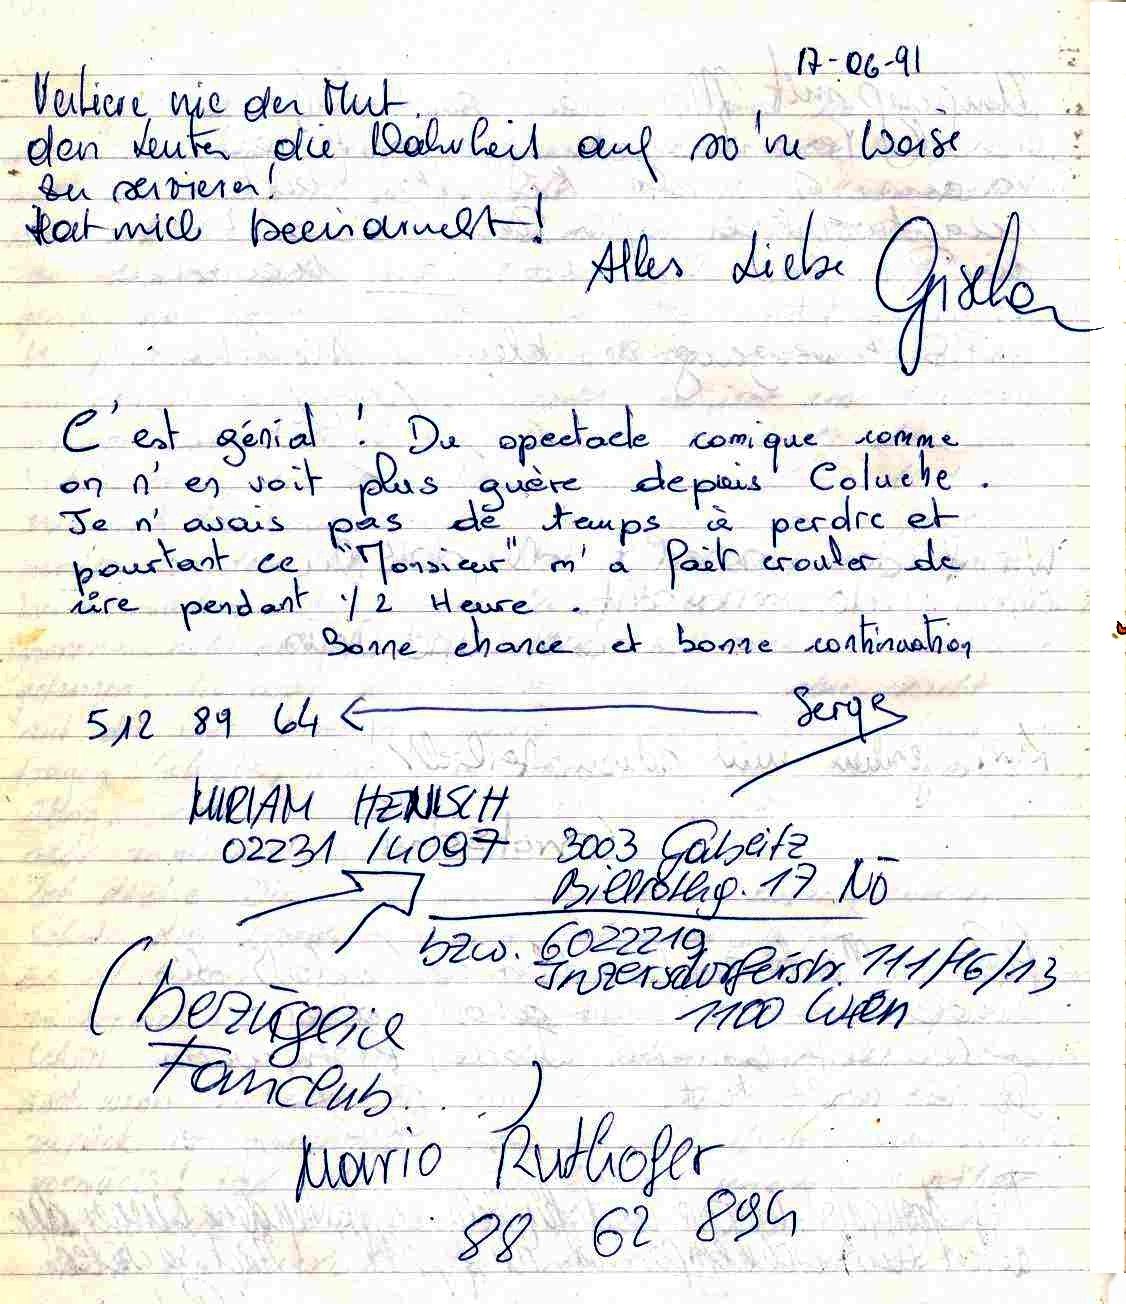 17-06-91
Verliere nie den Mut
den Leuten die Wahrheit auf so'ne Weise
zu servieren!
Hat mich beeindruckt!
Alles Liebe Gisela
C'est génial ! Du spectacle comique comme
on n'en voit plus guère depuis Coluche.
Je n'avais pas de temps à perdre et
pourtant ce "Monsieur" m'a fait crouler de
rire pendant 1/2 Heure.
Bonne chance et bonne continuation
Serge
512 89 64
MIRIAM HENISCH
02231 /4097 3003 Gablitz
Billrothg. 17 NÖ
bzw. 6022219
Inzersdorferstr. 111/16/13
1100 Wien
(bezüglich
Fanclub...)
Mario Ruthofer
88 62 894